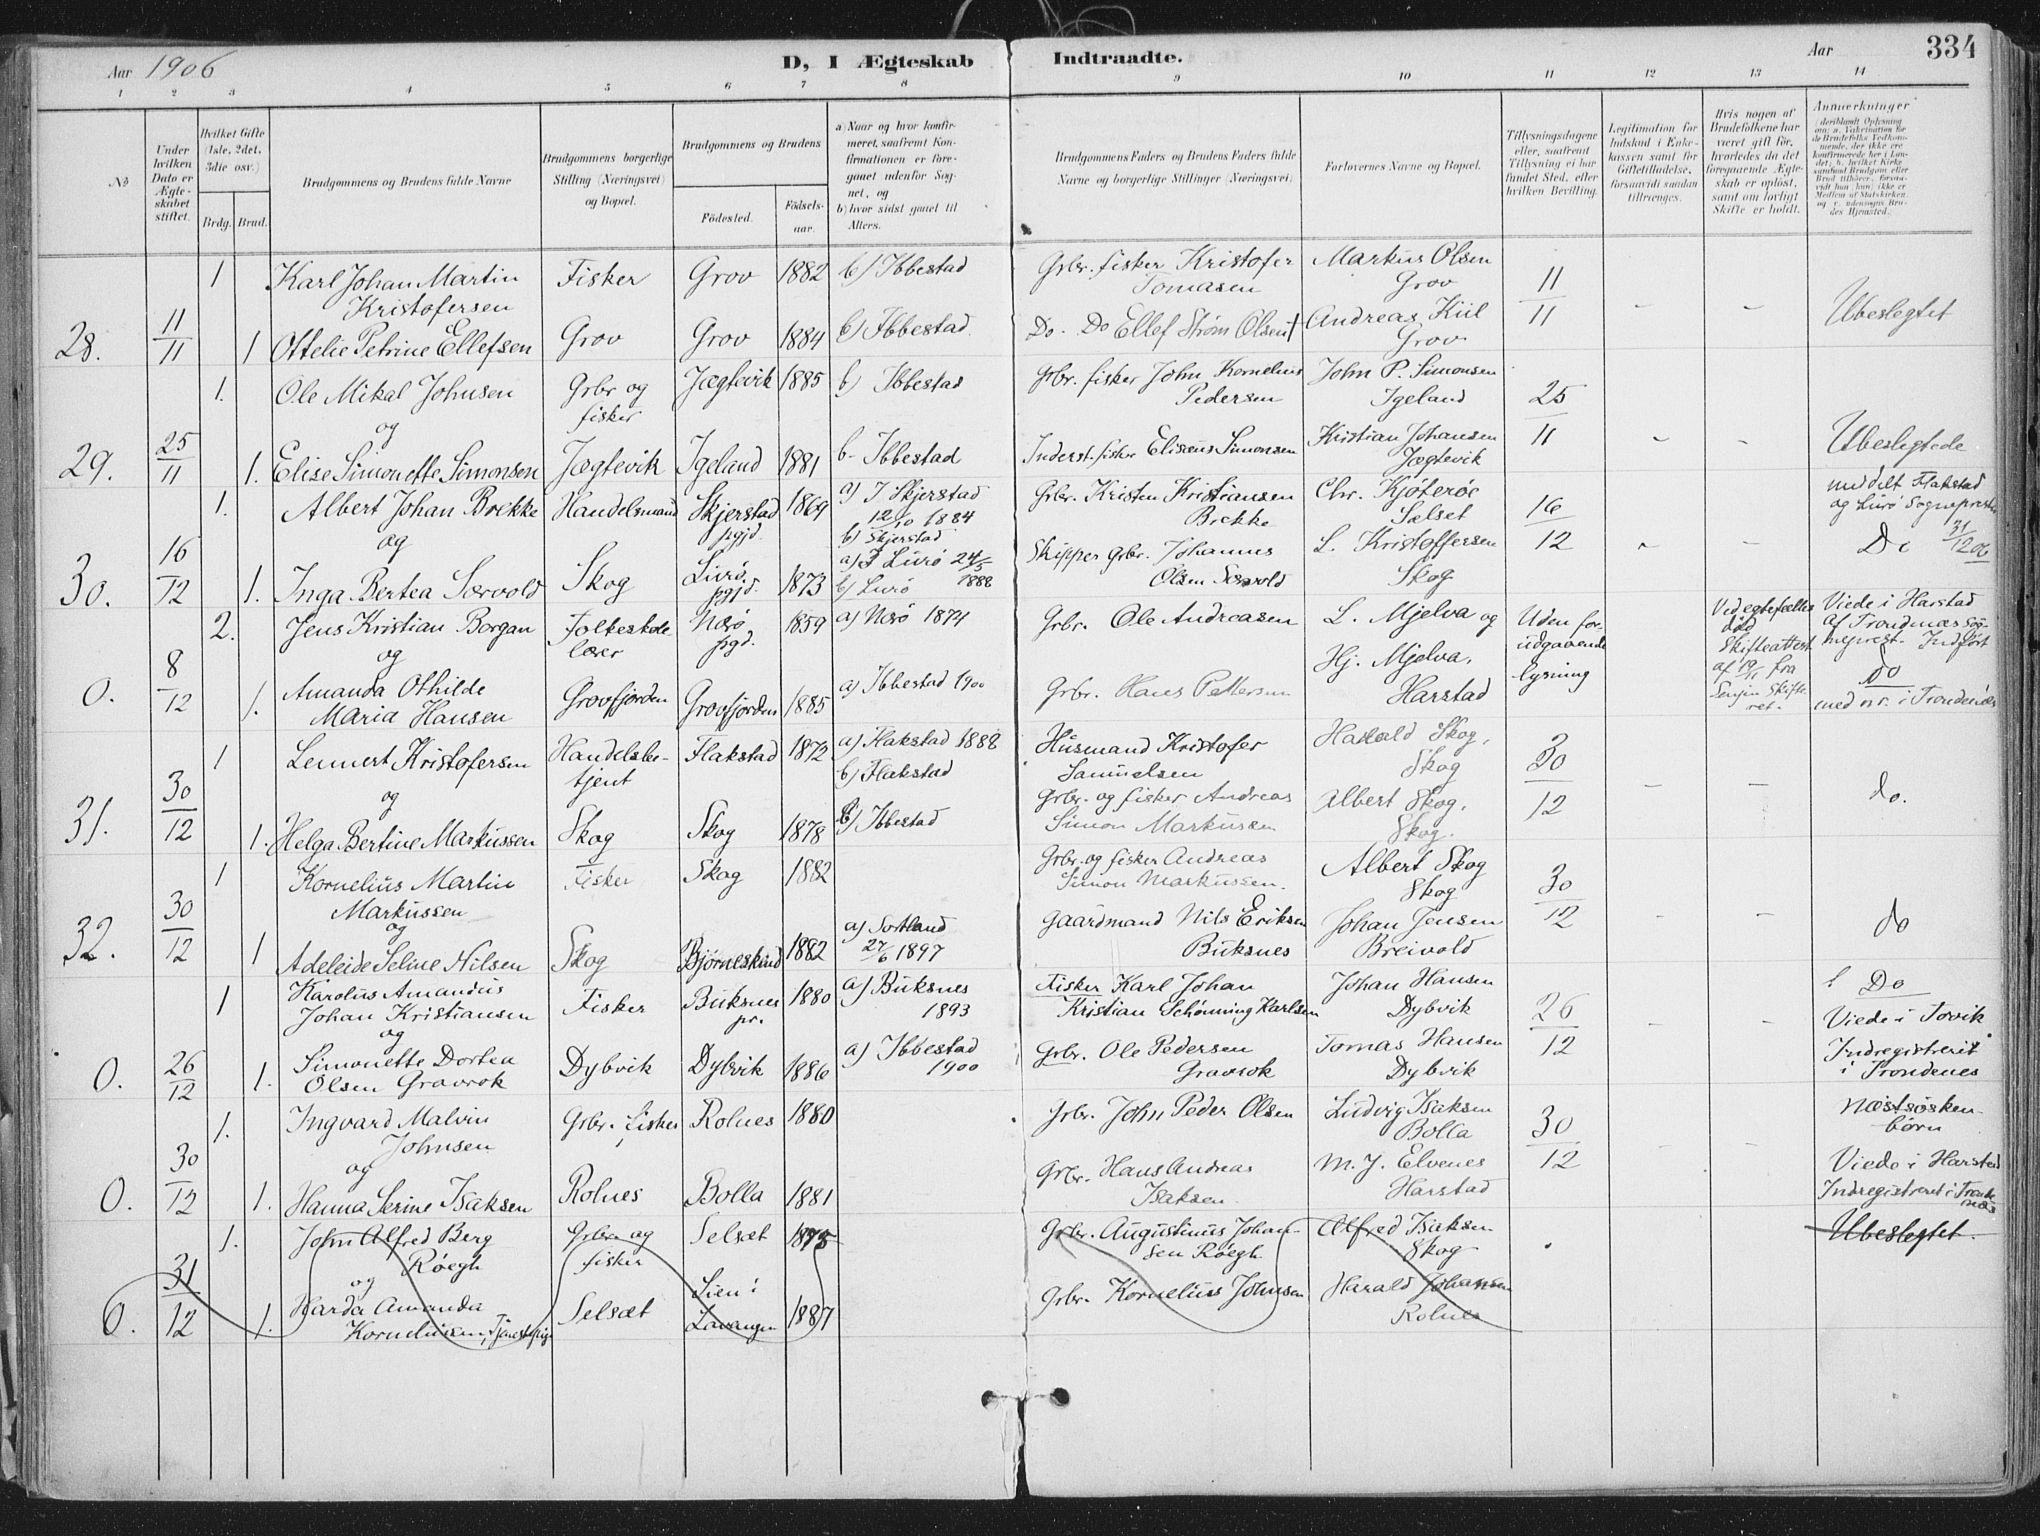 Aar 1906
D, I Ægteskab
Indtraadte.
Aar
334
1 2 3 4 5 6 7 8 9 10 11 12 13 14
No
Under hvilken Dato er Ægteskabet stiftet.
Hvilket Gifte (1ste, 2det, 3die osv.)
Brdg. Brud.
Brudgommens og Brudens fulde Navne
Brudgommens borgerlige Stilling (Næringsvei) og Bopæl.
Brudgommens og Brudens
Födested.
Födselsaar.
a) Naar og hvor konfirmeret, saafremt Konfirmationen er foregaaet udenfor Sognet, og
b) hvor sidst gaaet til Alters.
Brudgommens Faders og Brudens Faders fulde Navne og borgerlige Stillinger (Næringsvei)
Forlovernes Navne og Bopæl.
Tillysningsdagene eller, saafremt Tillysning ei har fundet Sted, efter hvilken Bevilling.
Legitimation for Indskud i Enkekassen samt for Giftetilladelse, forsaavidt saadan tiltrænges.
Hvis nogen af Brudefolkene har været gift før, hvorledes da det foregaaende Ægteskab er opløst, samt om lovligt Skifte er holdt.
Anmerkninger
(deriblandt Oplysning om: a. Vakcination for de Brudefolks Vedkommende, der ikke ere konfirmerede her i landet; b. hvilket Kirkesamfund Brudgom eller Brud tilhører, forsaavidt han (hun) ikke er Medlem af Statskirken, og c. udensogns Brudes Hjemsted.
28. 11/11
1 Karl Johan Martin Kristofersen
Fisker Grov 1882 b) Ibbestad
Grbr. fisker Kristofer Tomasen
Markus Olsen Grov
11/11 - - Ubeslegtet
1 Ottelie Petrine Ellefsen
Grov Grov 1884 b) Ibbestad.
Do. Do Ellef Strøm Olsen †
Andreas Kiil Grov
29. 25/11
1. Ole Mikal Johnsen og
Grbr og fisker Jægtevik 1885 b) Ibbestad
Grbr. fisker John Kornelius Pedersen
John P. Simonsen Igeland
25/11 - - Ubeslegtede
1. Elise Simonette Simonsen
Jægtevik Igeland 1881 b- Ibbestad
Inderst. fisker Eliseus Simonsen
Kristian Johansen Jægtevik
30. 16/12
1. Albert Johan Brekke og
Handelsmand Skjerstad pgjd. 1869
a) I Skjerstad 12/10 1884
b) Skjerstad
Grbr. Kristen Kristiansen Brekke
Chr. Kjøterøe Sælset
16/12 - -
meddelt Flakstad og Lurø Sogneprester 31/12 06
Do
1. Inga Bertea Sørvold
Skog Lurø pgjd. 1873
a) I Lurø 24/5 1888
b) Lurø
Skipper grbr. Johannes Olsen Sørvold
L. Kristoffersen Skog
0. 8/12
2. Jens Kristian Borgan og
Folkeskolelærer Nærø pgd. 1859 a) Nærø 1874
Grbr. Ole Andreasen
L. Mjelva og Hj. Mjelva, Harstad
Uden forudgaaende lysning
Ved egtefælles død Skifteattest af 19/1 fra Senjen Skifteret.
Viede i Harstad af Trondenæs Sogneprest. Indført
do
med nr. i Trondenæs
1. Amanda Othilde Maria Hansen
Grovfjorden Grovfjorden 1885 a) Ibbestad 1900
Grbr. Hans Pettersen
31. 30/12
1 Lennert Kristofersen og
Handelsbetjent Flakstad 1872
a) Flakstad 1888
b) Flakstad
Husmand Kristofer Samuelsen
Harald Skog, Skog
30/12 - - do.
1. Helga Bertine Markussen
Skog Skog 1878 b) Ibbestad
Grbr. og fisker Andreas Simon Markussen
Albert Skog, Skog.
32. 30/12
1 Kornelius Martin Markussen og
Fisker Skog 1882
Grbr. og fisker Andreas Simon Markussen.
Albert Skog Skog
30/12 - - do
1 Adeleide Seline Nilsen
Skog Bjørneskind 1882 a) Sortland 27/6 1897
Gaardmand Nils Eriksen Buksnes
Johan Jensen Breivold
0. 26/12
1 Karolus Amandus Johan Kristiansen og
Fisker Buksnes pr. 1880 a) Buksnes 1893
Fisker Karl Johan Kristian Schønning Karlsen
Johan Hansen Dybvik
26/12 - -
Do
Viede i Tovik
Indregistreret i Trondenes
1. Simonette Dortea Olsen Gravrok
Dybvik Dybvik 1886 a) Ibbestad 1900
Grbr. Ole Pedersen Gravrok
Tomas Hansen Dybvik
0. 30/12
1. Ingvard Malvin Johnsen og
Grbr. fisker Rolnes 1880
Grbr. John Peder Olsen
Ludvig Isaksen Bolla
30/12 - -
Næstsøskenbørn
Viede i Harstad
Indregistreret i Trondenæs
1. Hanna Serine Isaksen
Rolnes Bolla 1881
Grbr. Hans Andreas Isaksen
M. J. Elvenes Harstad
0. 31/12
1. John Alfred Berg Røegh og
Grbr. og fisker Selsæt 1875
Grbr. Augustinus Johansen Røegh
Alfred Isaksen Skog
Ubeslegtet.
1. Harda Amanda Kornelius​sen, Tjenestepige
Selsæt Lien i Lavangen 1887
Grbr. Kornelius Johnsen
Harald Johansen Rolnes